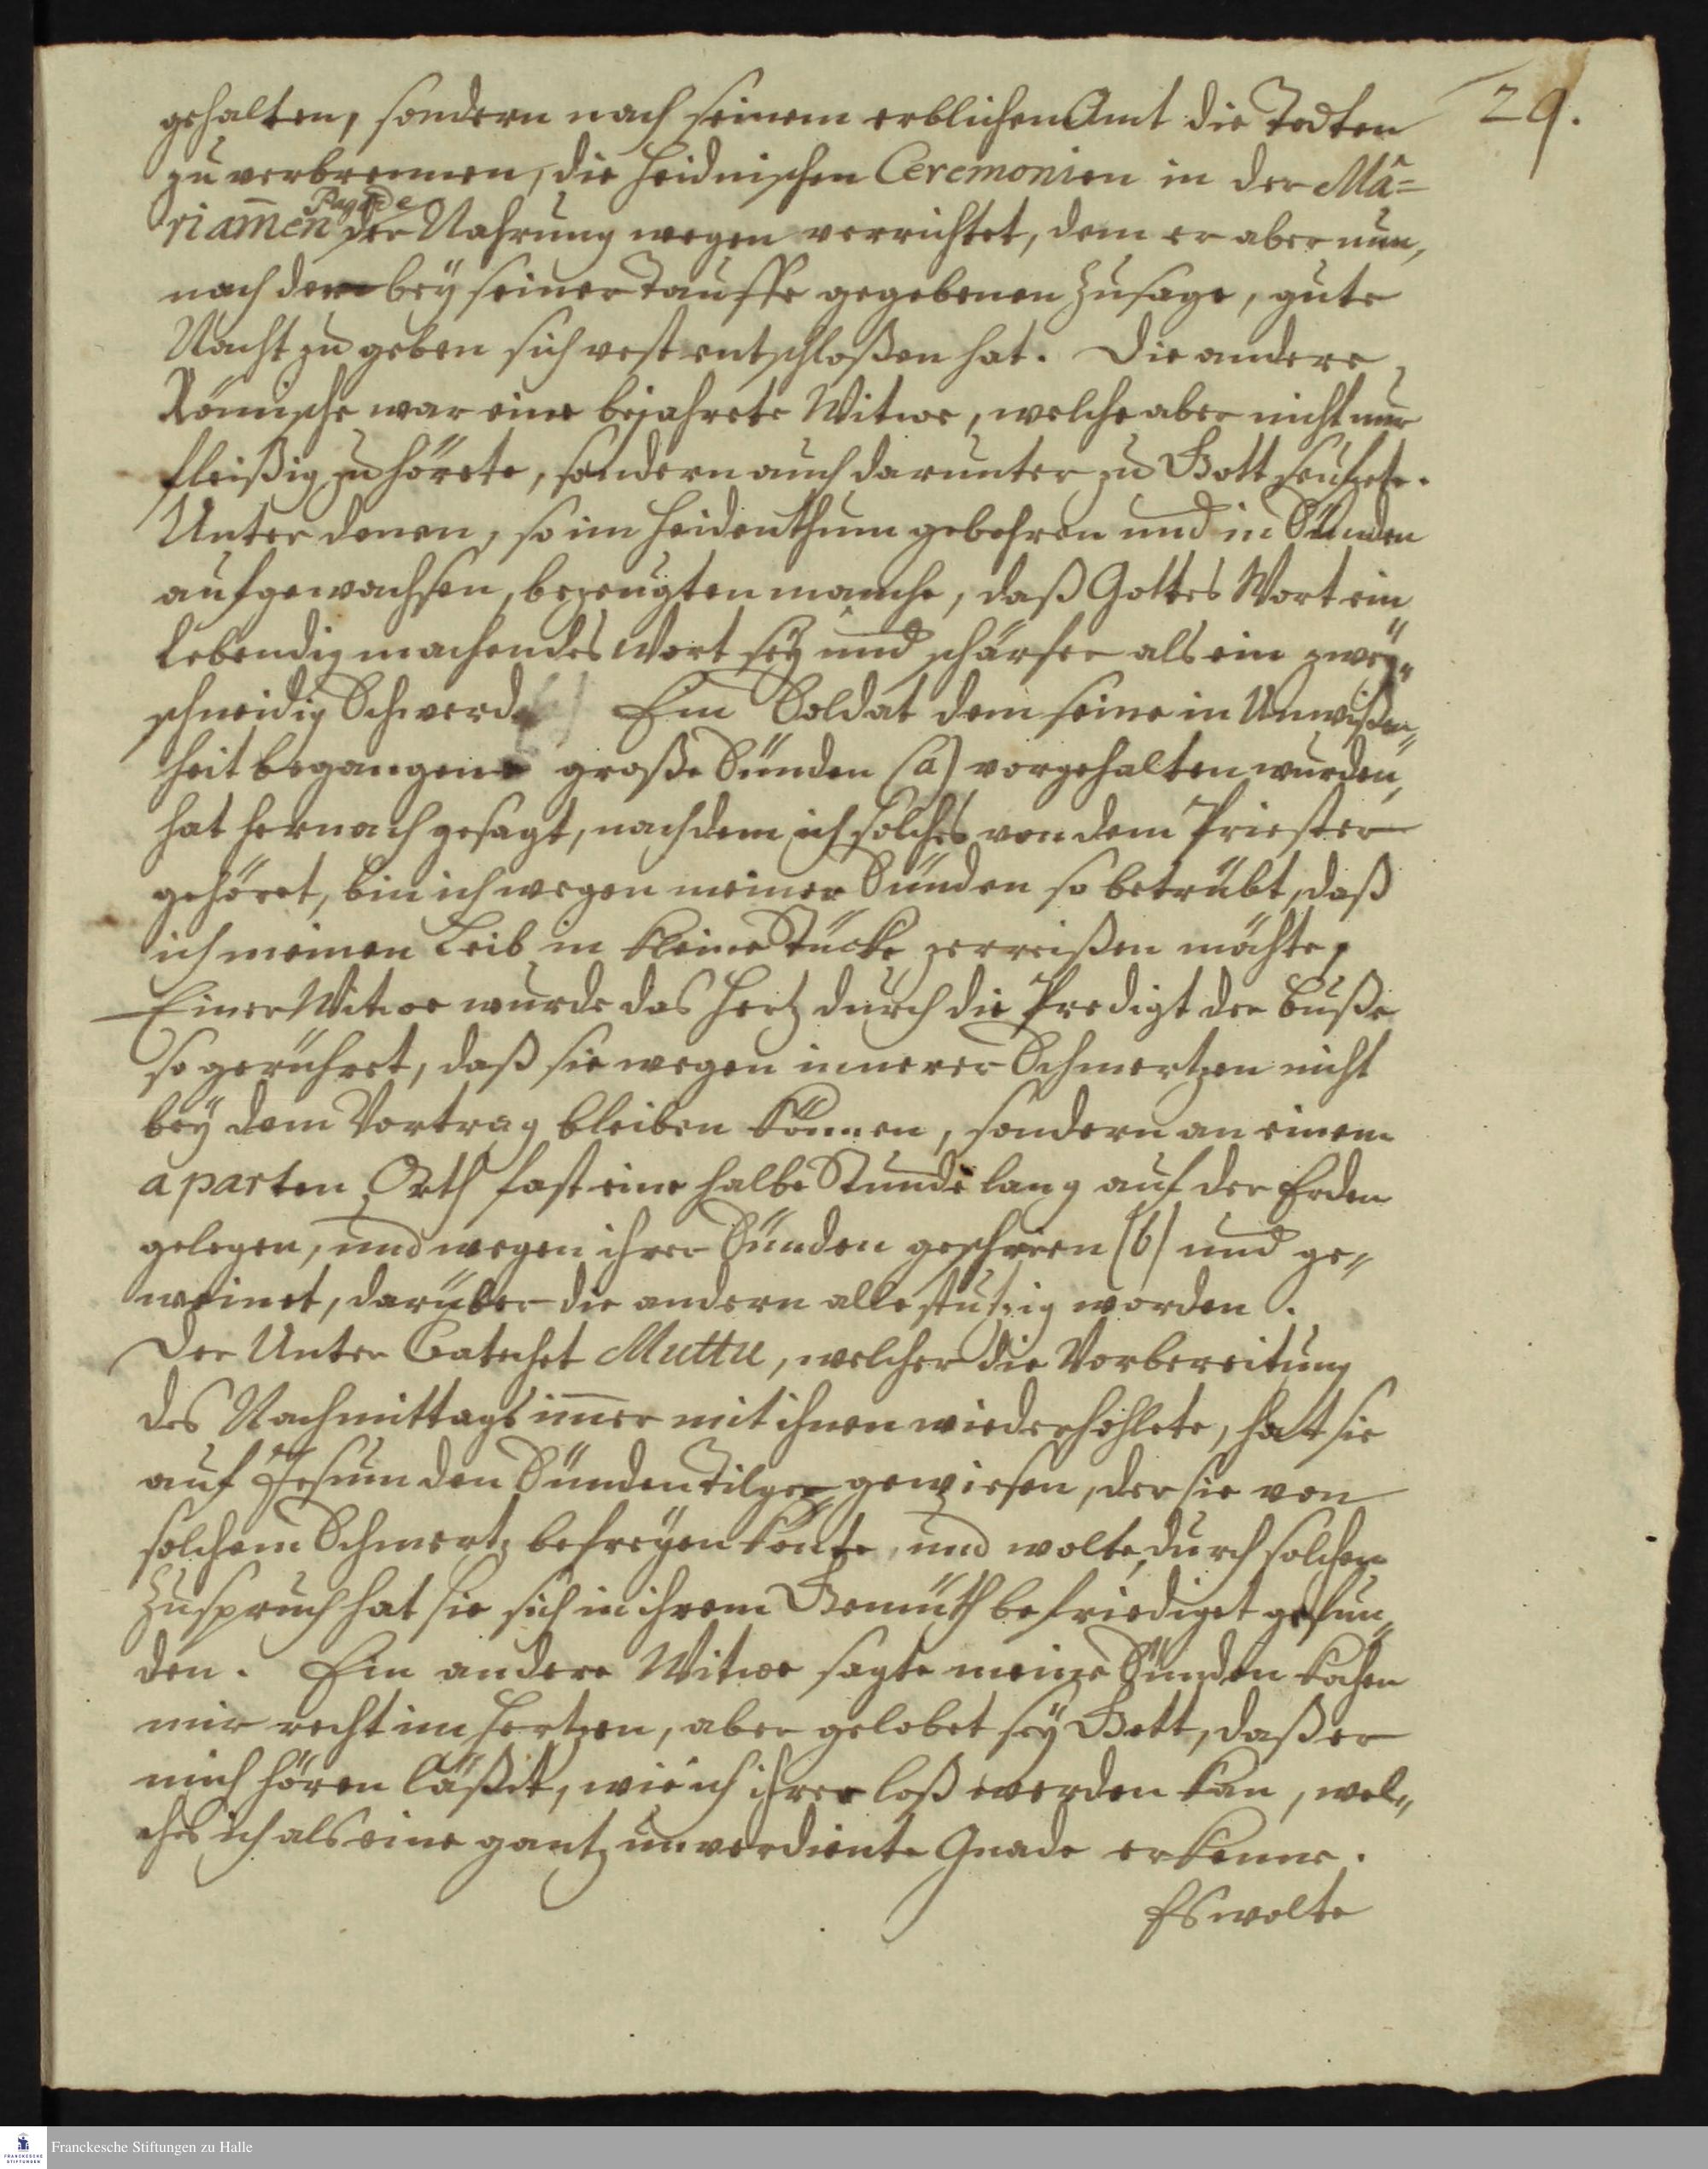 29.
gehalten, sondern nach seinem erblichen Amt die Todten
zu verbrennen, die Heidnischen Ceremonien in der Mâ=
Pagode
riam̄en der Nahrung wegen verrichtet, dem er aber nun,
nach der bey seiner Tauffe gegebenen Zusage, gute
Nacht zu geben sich vest entschloßen hat. Die andere
Römische war eine bejahrete Witwe, welche aber nicht nur
fleißig zuhörete, sondern auch darunter zu Gott seufzete.
Unter denen, so im Heidenthum gebohren und in Sünden
aufgewachsen, bezeugten manche, daß Gottes Wort ein
lebendigmachendes Wort sey und schärfer als ein zwey„
schneidig Schwerd. Ein Soldat dem seine in Unwißen„
heit begangene große Sünden (a) vorgehalten wurden,
hat hernach gesagt, nachdem ich solches von dem Priester
gehöret, bin ich wegen meiner Sünden so betrübt, daß
ich meinen Leib in kleine Stücke zerreißen möchte,
Einer Witwe wurde das Hertz durch die Predigt der Buße
so gerühret, daß sie wegen innerer Schmertzen nicht
bey dem Vortrag bleiben können, sondern an einem
aparten Orth fast eine halbe Stunde lang auf der Erden
gelegen, und wegen ihrer Sünden geschrien (b) und ge„
weinet, darüber die andern alle stutzig worden.
Der Unter Catechet Muttu, welcher die Vorbereitung
des Nachmittags im̄er mit ihnen wiederhohlete, hat sie
auf Jesum den Sünden Tilger gewiesen, der sie von
solchem Schmertz befreyen konte, und wolte, durch solchen
Zuspruch hat sie sich in ihrem Gemüth befriediget gefun„
den. Ein andere Witwe sagte meine Sünden kochen
mir recht im Hertzen, aber gelobet sey Gott, daß er
mich hören läßet, wie ich ihrer loß werden kan, wel„
ches ich als eine gantz unverdiente Gnade erkenne.
Es wolte
Franckesche Stiftungen zu Halle
FRANCKESCHE
STIFTUNGEN